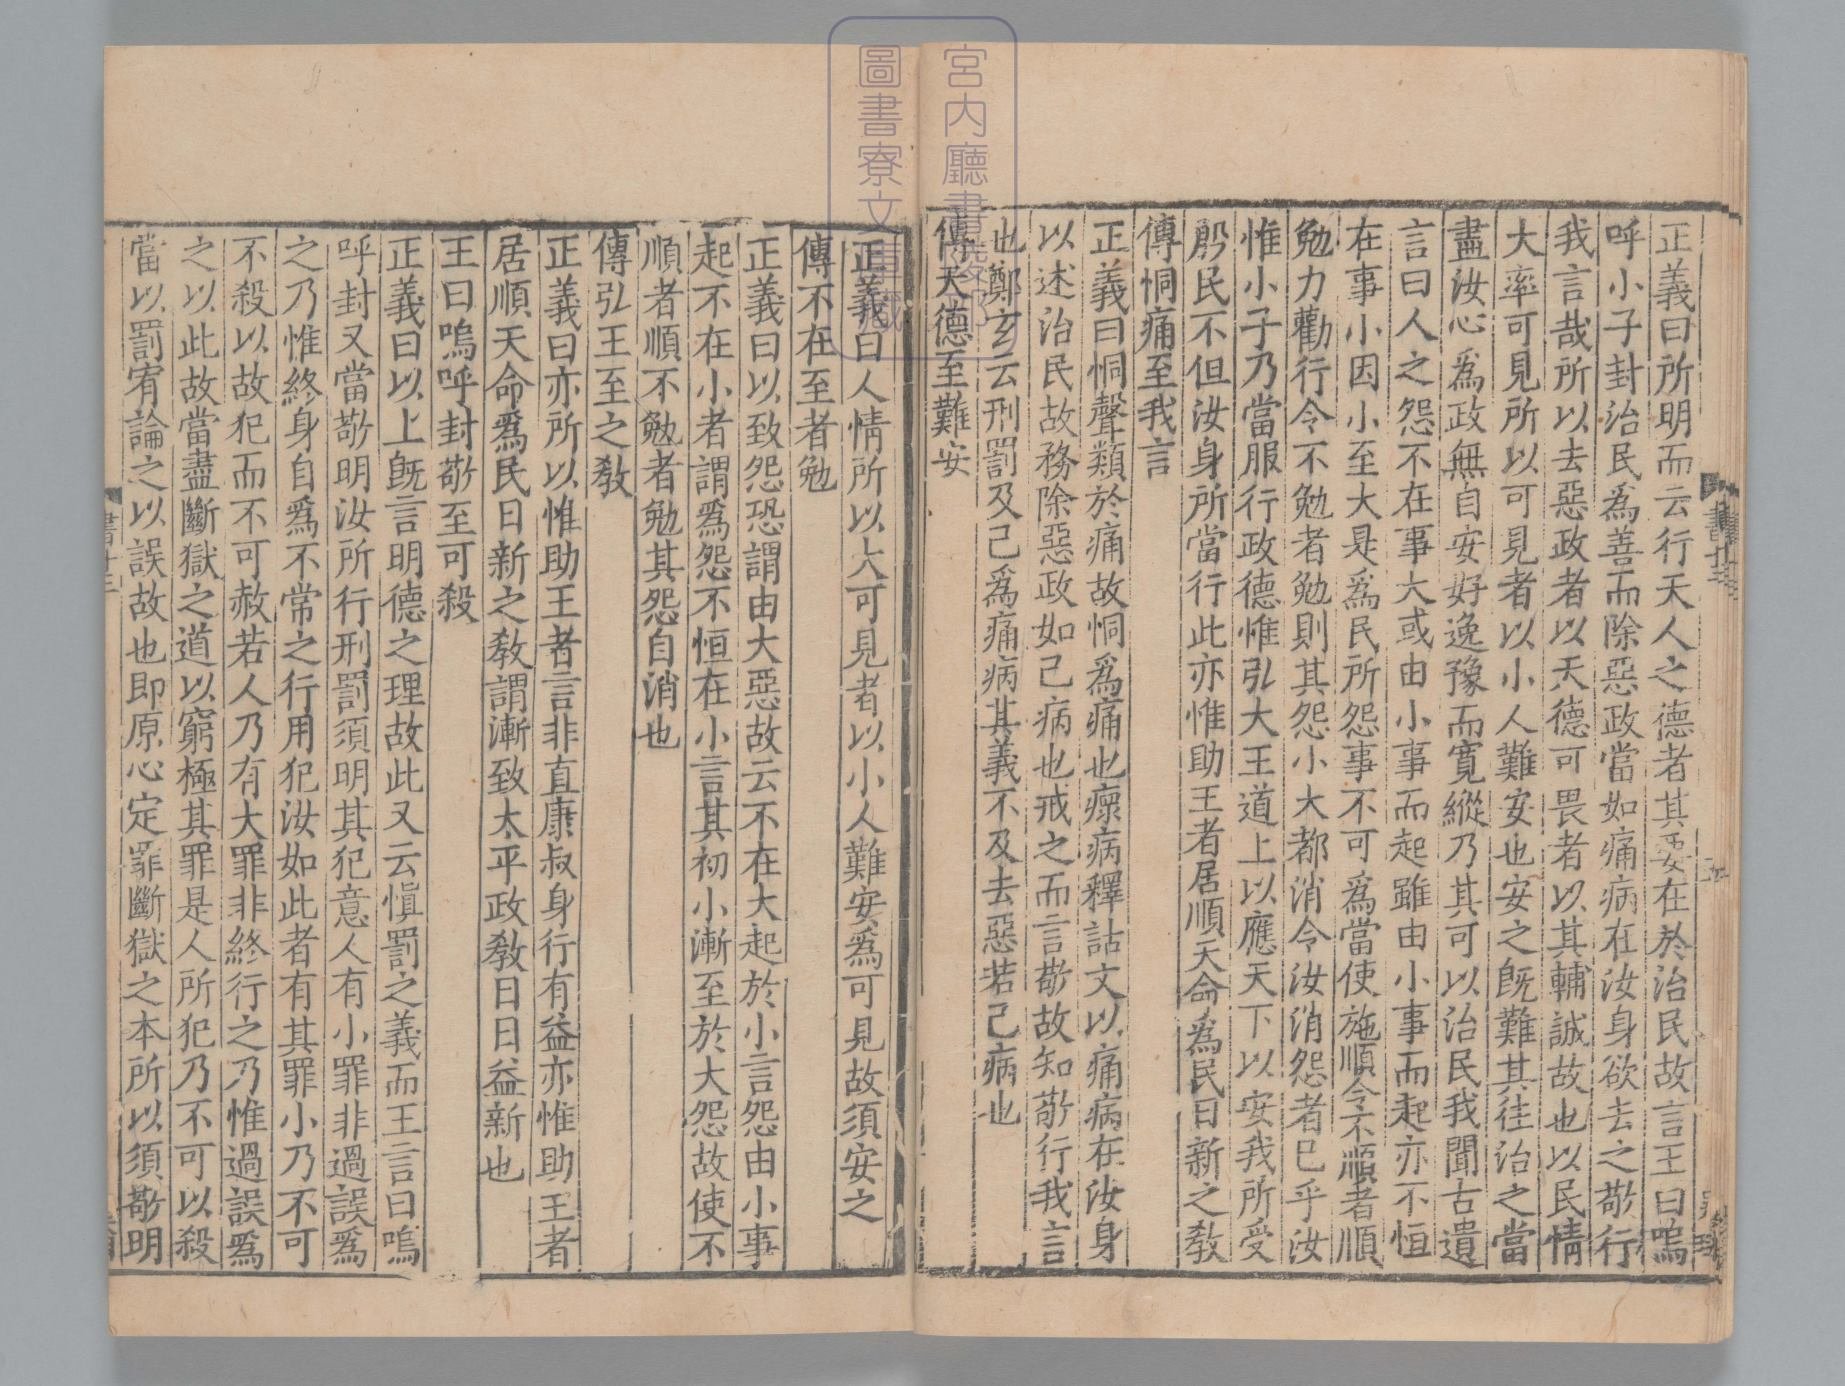 正義曰所明而云行天人之德者其要在於治民故言王曰嗚
呼小子封治民爲善而除惡政當如痛病在汝身欲去之敬行
我言哉所以去惡政者以天德可畏者以其輔誠故也以民情
大率可見所以可見者以小人難安也安之旣難其往治之當
盡汝心爲政無自安好逸豫而寬縱乃其可以治民我聞古遺
言曰人之怨不在事大或由小事而起雖由小事而起亦不恒
在事小因小至大是爲民所怨事不可爲當使施順令不順者順
勉力勸行令不勉者勉則其怨小大都消令汝消怨者已乎汝
惟小子乃當服行政德惟弘大王道上以應天下以安我所受
殷民不但汝身所當行此亦惟助王者居順天命爲民日新之敎
傳恫痛至我言
正義曰恫聲類於痛故恫爲痛也瘝病釋詁文以痛病在汝身
以述治民故務除惡政如己病也戒之而言敬故知敬行我言
也鄭玄云刑罰及己爲痛病其義不及去惡若己病也
傳天德至難安
正義曰人情所以大可見者以小人難安爲可見故須安之
傳不在至者勉
正義曰以致怨恐謂由大惡故云不在大起於小言怨由小事
起不在小者謂爲怨不恒在小言其初小漸至於大怨故使不
順者順不勉者勉其怨自消也
傳弘王至之敎
正義曰亦所以惟助王者言非直康叔身行有益亦惟助王者
居順天命爲民日新之敎謂漸致太平政敎日日益新也
王曰嗚呼封敬至可殺
正義曰以上旣言明德之理故此又云愼罰之義而王言曰嗚
呼封又當敬明汝所行刑罰須明其犯意人有小罪非過誤爲
之乃惟終身自爲不常之行用犯汝如此者有其罪小乃不可
不殺以故犯而不可赦若人乃有大罪非終行之乃惟過誤爲
之以此故當盡斷獄之道以窮極其罪是人所犯乃不可以殺
當以罰宥論之以誤故也即原心定罪斷獄之本所以須敬明
書十三
宮内廳書陵部
圖書寮文庫藏